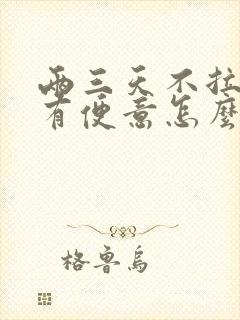 兩三天不拉
有便意怎麼
格魯烏